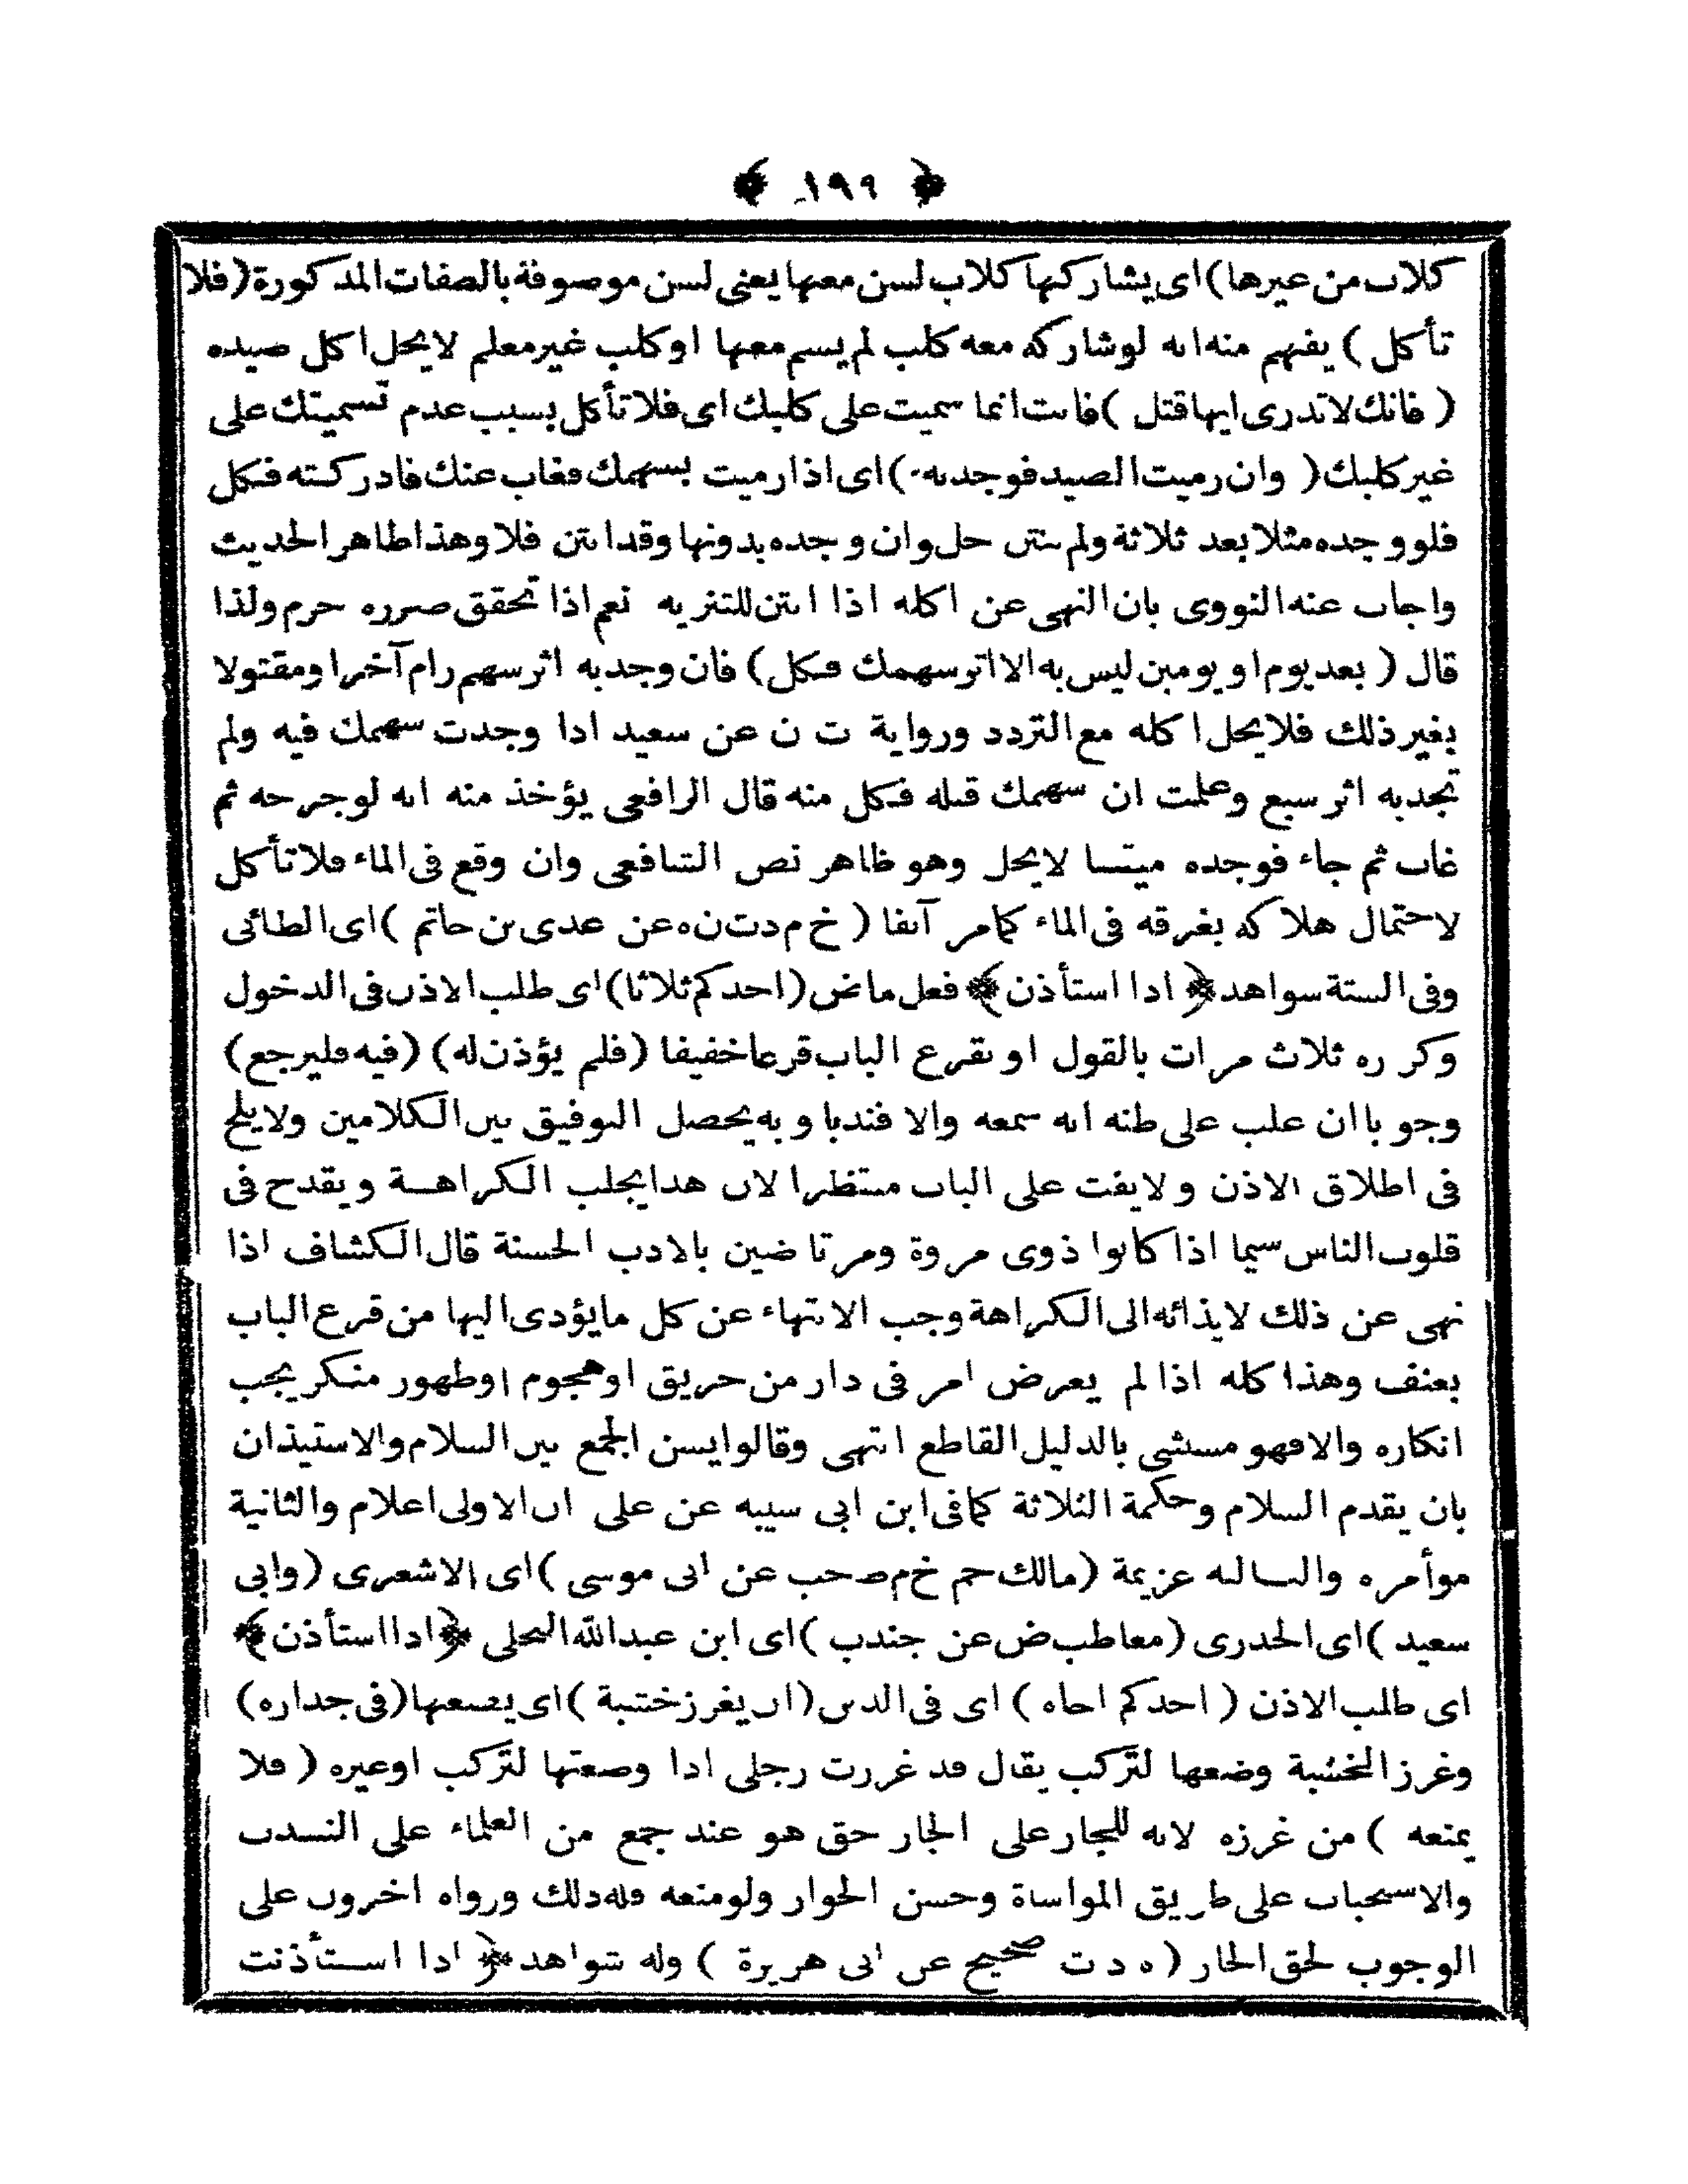 ﴿ ١٩٩ ﴾
كلاب من غيرها) اى يشاركها كلاب لسن معها يعنى لسن موصوفة بالصفات المذكورة (فلا
تأكل) يفهم منه انه لوشاركه معه كلب لم يسم معها اوكلب غير معلم لا يحل اكل صيده
(فانك لاتدرى ايها قتل) فانت انما سميت على كلبك اى فلا تأكل بسبب عدم تسميتك على
غير كلبك (وان رميت الصيد فوجدته) اى اذا رميت بسهمك فغاب عنك فادركته فكل
فلووجده مثلا بعد ثلاثة ولم ينتن حل وان وجده بدونها وقد انتن فلا وهذا ظاهر الحديث
واجاب عنه النووى بان النهى عن اكله اذا انتن للتنزيه نعم اذا تحقق ضرره حرم ولذا
قال (بعد يوم او يومين ليس به الا اثر سهمك فكل) فان وجد به اثر سهم رام آخر او مقتولا
بغير ذلك فلا يحل اكله مع التردد ورواية ت ن عن سعيد اذا وجدت سهمك فيه ولم
تجد به اثر سبع وعلمت ان سهمك قتله فكل منه قال الرافعى يؤخذ منه انه لو جرحه ثم
غاب ثم جاء فوجده ميتسا لايحل وهو ظاهر نص الشافعى وان وقع فى الماء فلا تأكل
لاحتمال هلاكه بغرقه فى الماء كمامر آنفا (خ م د ت ن ه عن عدى بن حاتم) اى الطائى
وفى الستة سواهد ﴿اذا استأذن﴾ فعل ماض (احدكم ثلاثا) اى طلب الاذن فى الدخول
وكرره ثلاث مرات بالقول او بقرع الباب قرعا خفيفا (فلم يؤذن له) (فيه فليرجع)
وجوبا ان غلب على ظنه انه سمعه والا فندبا وبه يحصل التوفيق بين الكلامين ولايلح
فى اطلاق الاذن ولايقف على الباب منتظرا لان هذا يجلب الكراهة ويقدح فى
قلوب الناس سيما اذا كانوا ذوى مروة ومرتاضين بالادب الحسنة قال الكشاف اذا
نهى عن ذلك لايذائه الى الكراهة وجب الانتهاء عن كل مايؤدى اليها من قرع الباب
بعنف وهذا كله اذا لم يعرض امر فى دار من حريق او هجوم اوظهور منكر يجب
انكاره والا فهو مستثنى بالدليل القاطع انتهى وقالوا يسن الجمع بين السلام والاستيذان
بان يقدم السلام وحكمة الثلاثة كمافى ابن ابى شيبه عن على ان الاولى اعلام والثانية
موأمره والثالثه عزيمة (مالك حم خ م د حب عن ابى موسى) اى الاشعرى (وابى
سعيد) اى الخدرى (معا طب ض عن جندب) اى ابن عبدالله البجلى ﴿اذا استأذن﴾
اى طلب الاذن (احدكم اخاه) اى فى الدين (ان يغرز خشبة) اى يضعها (فى جداره)
وغرز الخشبة وضعها لتركب يقال قد غررت رجلى اذا وضعتها لتركب اوغيره (فلا
يمنعه) من غرزه لانه للجار على الجار حق هو عند جمع من العلماء على الندب
والاستحباب على طريق المواساة وحسن الجوار ولومنعه فله ذلك ورواه اخرون على
الوجوب لحق الجار (ه د ت صحيح عن ابى هريرة) وله شواهد ﴿اذا استأذنت